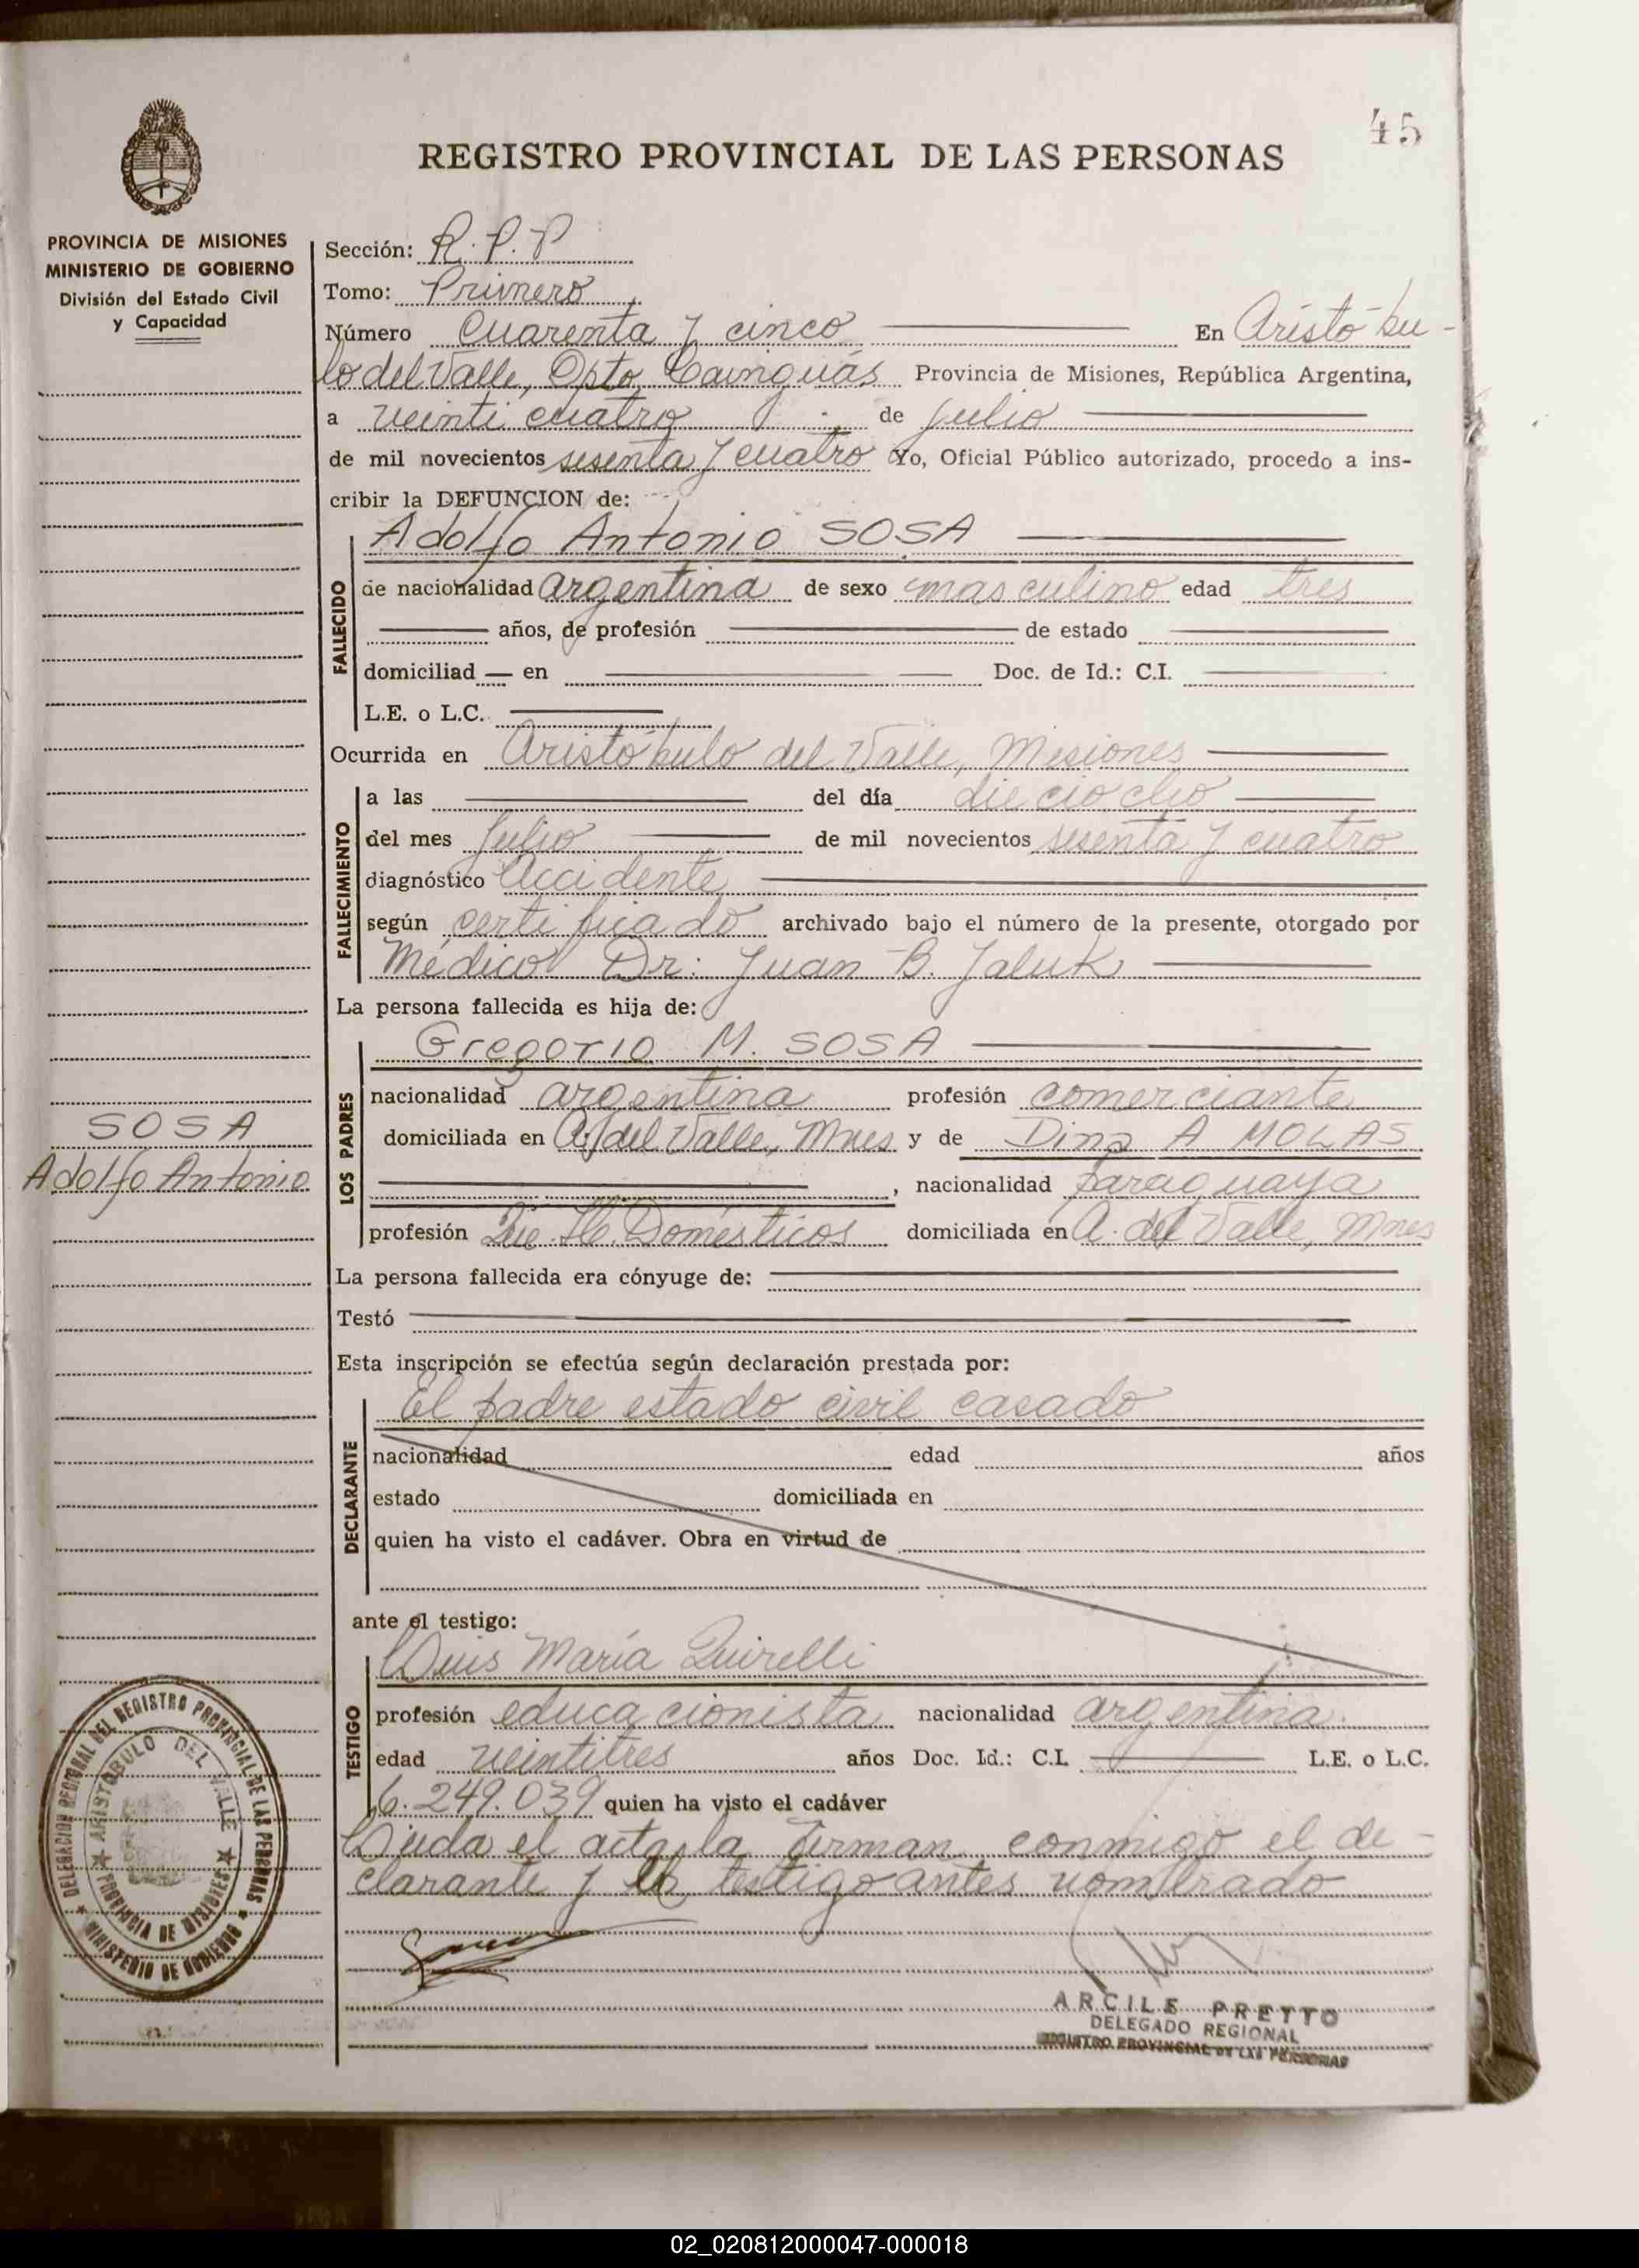 45
REGISTRO PROVINCIAL DE LAS PERSONAS
PROVINCIA DE MISIONES
MINISTERIO DE GOBIERNO
División del Estado Civil
y Capacidad
Sección: R.P.P
Tomo: Primero
Número Cuarenta y cinco En Aristóbu-
lo del Valle, Dpto. Cainguás Provincia de Misiones, República Argentina,
a veinti cuatro de julio
de mil novecientos sesenta y cuatro Yo, Oficial Público autorizado, procedo a ins-
cribir la DEFUNCION de:
Adolfo Antonio SOSA
FALLECIDO
de nacionalidad argentina de sexo masculino edad tres
años, de profesión de estado
domiciliad — en Doc. de Id.: C.I.
L.E. o L.C.
Ocurrida en Aristóbulo del Valle, Misiones
FALLECIMIENTO
a las del día dieciocho
del mes Julio de mil novecientos sesenta y cuatro
diagnóstico Accidente
según certificado archivado bajo el número de la presente, otorgado por
Médico Dr: Juan B. Jaluk
La persona fallecida es hija de:
Gregorio M. SOSA
LOS PADRES
nacionalidad argentina profesión comerciante
domiciliada en A. del Valle, Mnes y de Dina A MOLAS
, nacionalidad paraguaya
profesión Domésticos domiciliada en A. del Valle, Mnes
SOSA
Adolfo Antonio
La persona fallecida era cónyuge de:
Testó
Esta inscripción se efectúa según declaración prestada por:
El padre estado civil casado
DECLARANTE
nacionalidad edad años
estado domiciliada en
quien ha visto el cadáver. Obra en virtud de
ante el testigo:
Luis María Quirelli
TESTIGO
profesión educacionista nacionalidad argentina
edad veintitres años Doc. Id.: C.I. L.E. o L.C.
6.249.039 quien ha visto el cadáver
Leída el acta, la firman conmigo el de-
clarante y el testigo antes nombrado
DELEGACION REGIONAL DEL REGISTRO PROVINCIAL DE LAS PERSONAS
MINISTERIO DE GOBIERNO
ARISTOBULO DEL VALLE
PROVINCIA DE MISIONES
ARCILE PRETTO
DELEGADO REGIONAL
REGISTRO PROVINCIAL DE LAS PERSONAS
02_020812000047-000018